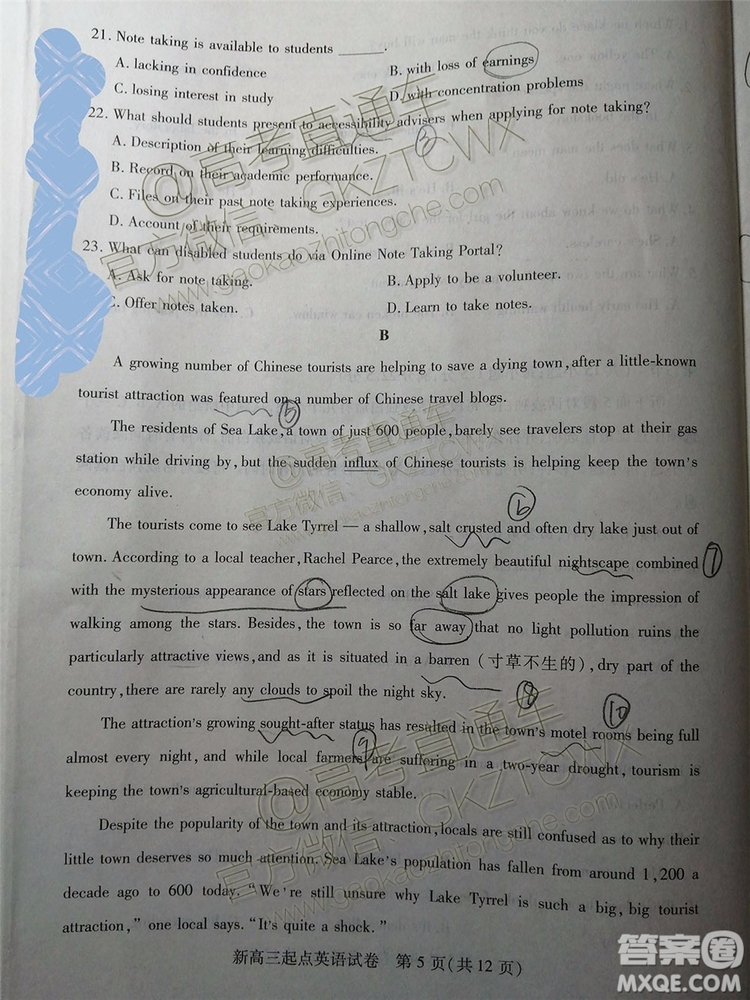 21. Note taking is available to students ______.
A. lacking in confidence B. with loss of earnings
C. losing interest in study D. with concentration problems
22. What should students present to accessibility advisers when applying for note taking?
A. Description of their learning difficulties.
B. Record on their academic performance.
C. Files on their past note taking experiences.
D. Account of their requirements.
23. What can disabled students do via Online Note Taking Portal?
A. Ask for note taking. B. Apply to be a volunteer.
C. Offer notes taken. D. Learn to take notes.
B
A growing number of Chinese tourists are helping to save a dying town, after a little-known
tourist attraction was featured on a number of Chinese travel blogs.
The residents of Sea Lake, a town of just 600 people, barely see travelers stop at their gas
station while driving by, but the sudden influx of Chinese tourists is helping keep the town's
economy alive.
The tourists come to see Lake Tyrrel — a shallow, salt crusted and often dry lake just out of
town. According to a local teacher, Rachel Pearce, the extremely beautiful nightscape combined
with the mysterious appearance of stars reflected on the salt lake gives people the impression of
walking among the stars. Besides, the town is so far away that no light pollution ruins the
particularly attractive views, and as it is situated in a barren (寸草不生的), dry part of the
country, there are rarely any clouds to spoil the night sky.
The attraction's growing sought-after status has resulted in the town's motel rooms being full
almost every night, and while local farmers are suffering in a two-year drought, tourism is
keeping the town's agricultural-based economy stable.
Despite the popularity of the town and its attraction, locals are still confused as to why their
little town deserves so much attention. Sea Lake's population has fallen from around 1,200 a
decade ago to 600 today. "We're still unsure why Lake Tyrrel is such a big, big tourist
attraction," one local says. "It's quite a shock."
新高三起点英语试卷 第 5 页(共 12 页)
@高考直通车
官方微信: GKZTCWX
www.gaokaozhitongche.com
@高考直通车
官方微信: GKZTCWX
www.gaokaozhitongche.com
@高考直通车
官方微信: GKZTCWX
www.gaokaozhitongche.com
⑤
⑥
⑦
⑧
⑨
⑩
答案圈
MXQE.COM